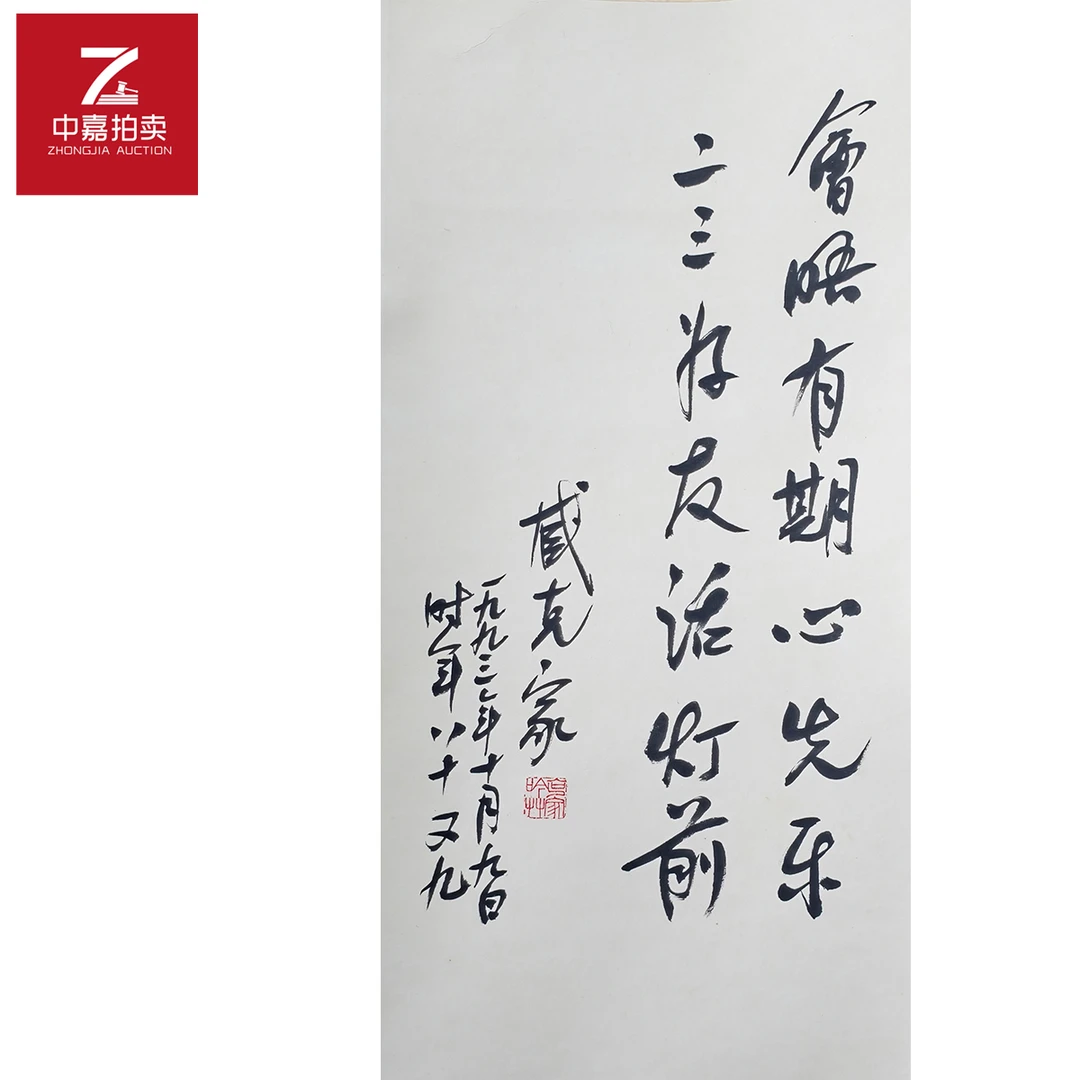 中嘉拍卖
ZHONGJIA AUCTION
會晤有期心先乐
二三好友话灯前
臧克家
一九九三年十月九日
时年八十又九